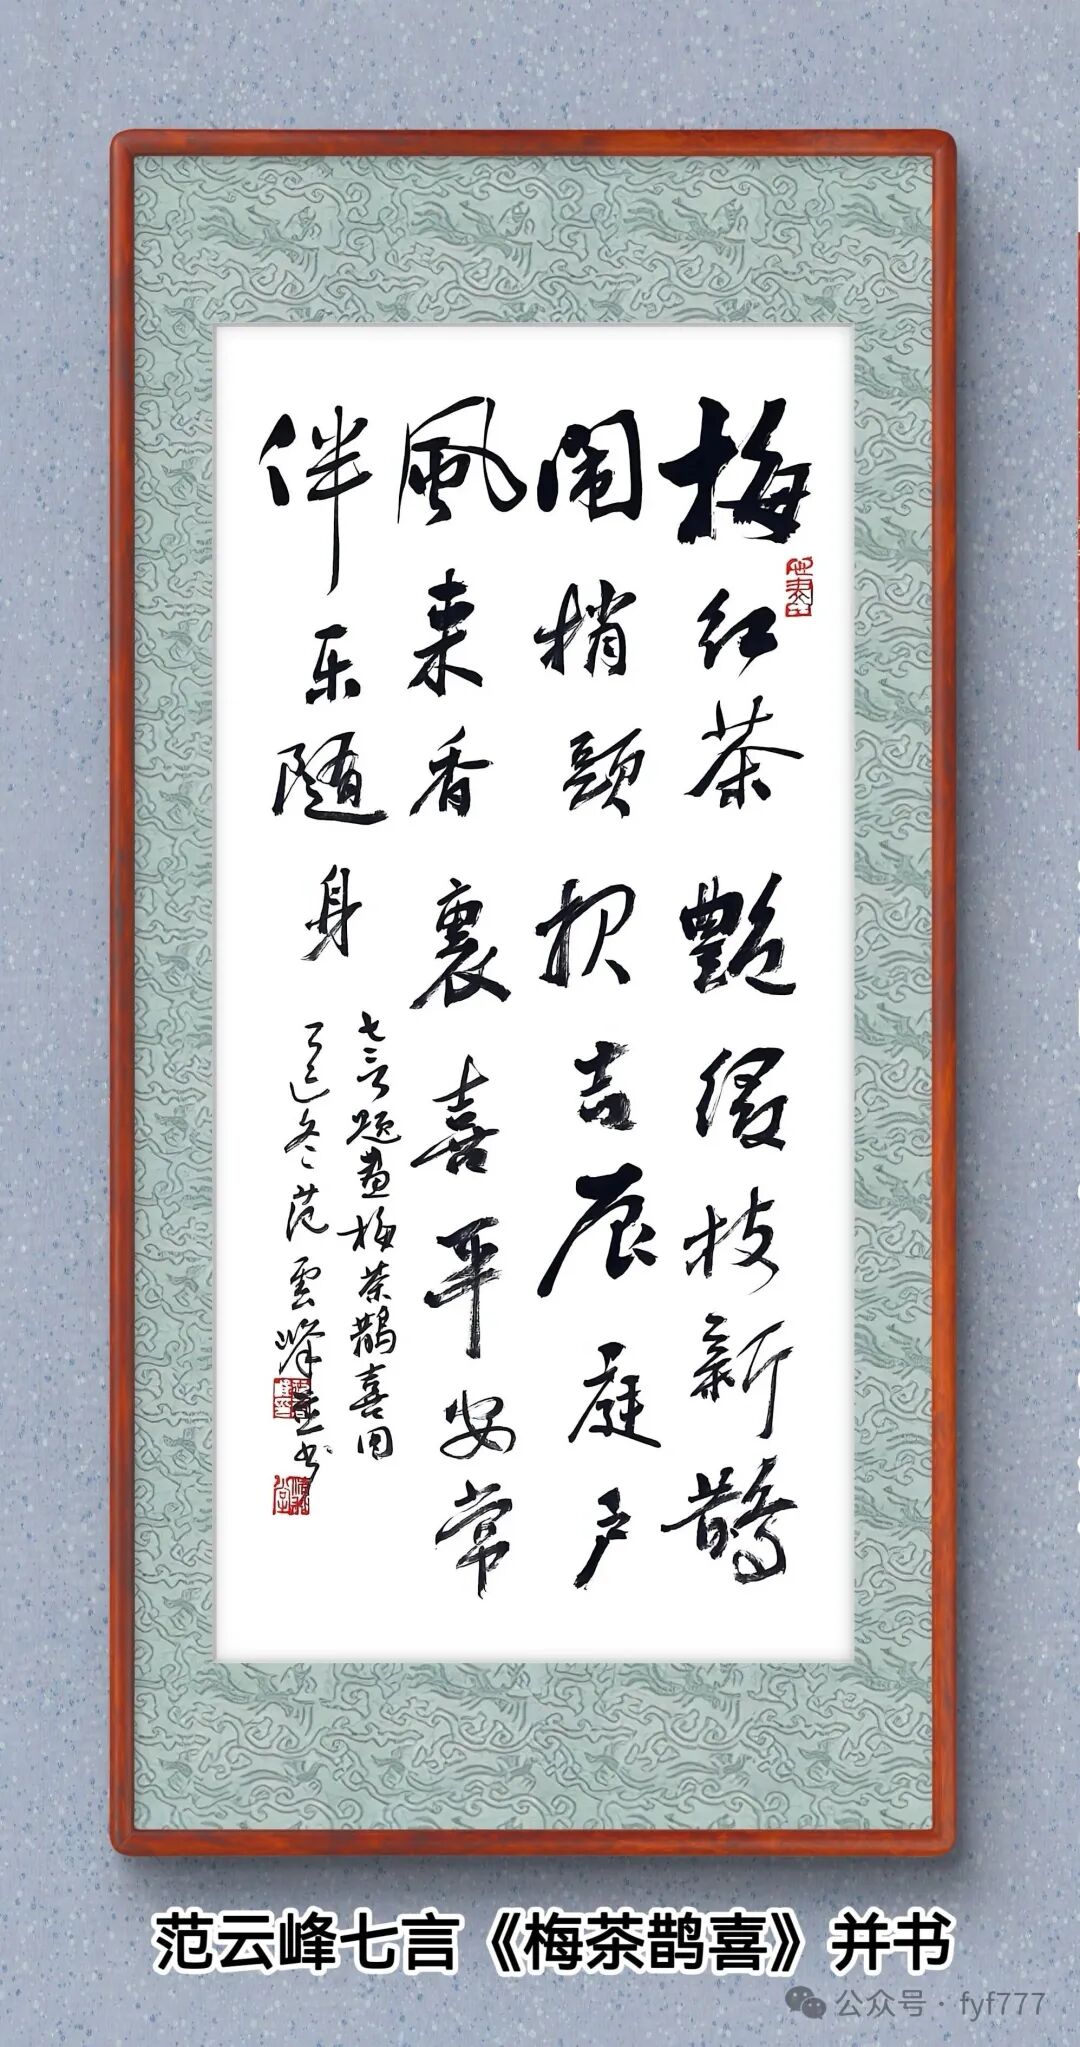 梅红茶艷缀枝新鹊
闹梢头报吉辰庭户
風来香裏喜平安常
伴乐随身
七言题画梅茶鹊喜图
乙巳冬范雲峰并书
范云峰七言《梅茶鹊喜》并书
公众号·fyf777